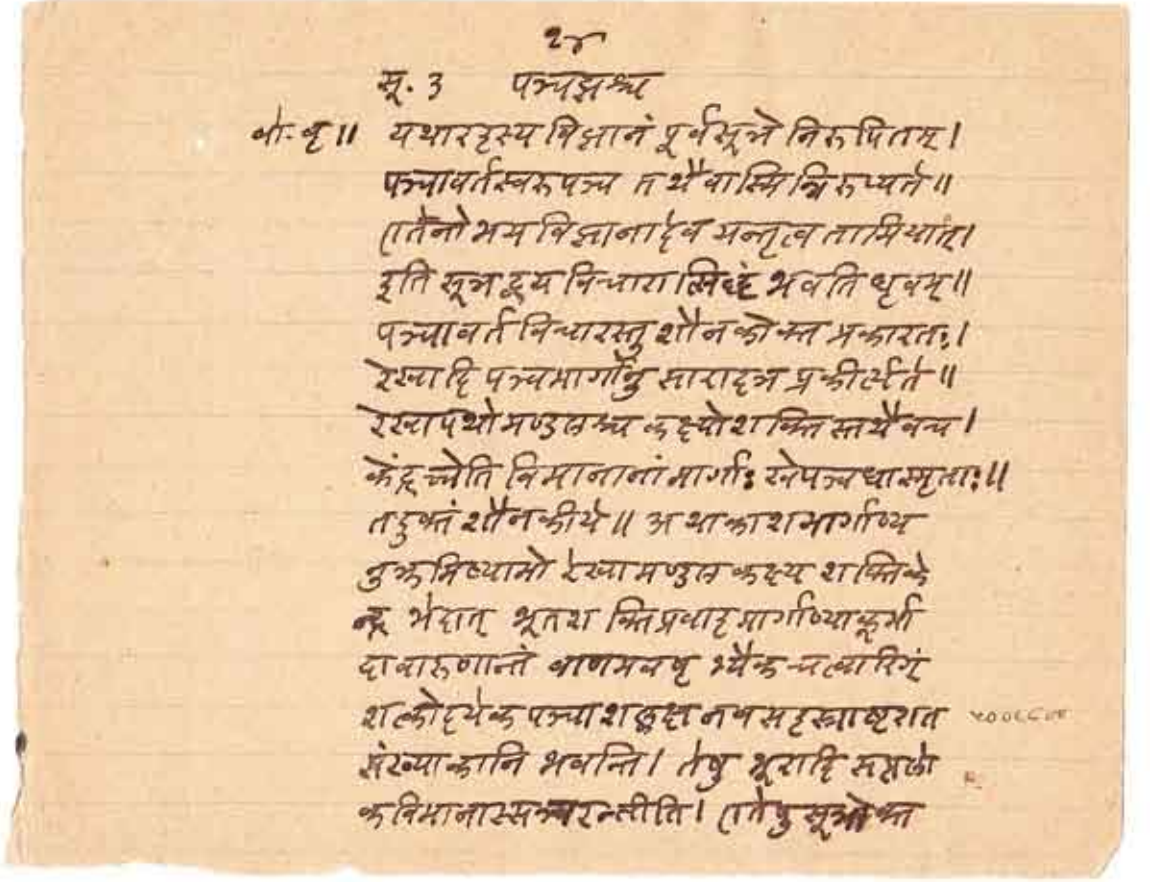 २४
सू. 3 पञ्चज्ञश्च
बो. वृ॥ यथारहस्य विज्ञानं पूर्वसूत्रे निरूपितम्।
पञ्चावर्तस्वरूपञ्च तथैवास्मिन्निरूप्यते॥
एतेनोभय विज्ञानादेव यन्तृत्वतामियात्।
इति सूत्रद्वय विचारात्सिध्दं भवति धृवम्॥
पञ्चावर्त विचारस्तु शौनकोक्त प्रकारतः।
रेखादि पञ्चमार्गानुसारादत्र प्रकीर्त्यते॥
रेखापथोमण्डलश्च कक्ष्योशक्तिस्तथैवच।
केंद्रच्चेति विमानानां मार्गाः खेपञ्चधास्मृताः॥
तदुक्तं शौनकीये॥ अथाकाशमार्गाण्य
नुक्रमिष्यामो रेखामण्डलकक्ष्य शक्तिके
न्द्र भेदात् भूतशक्तिप्रवाहमार्गाण्याकूर्मा
दावारुणान्तं चत्वारिगं
शत्कोट्येक पञ्चाशल्लक्ष नवसहस्राष्टशत
संख्याकानि भवन्ति। तेषु भूरादि सप्तलो
कविमानास्सञ्चरन्तीति। एतेषु सूत्रोक्त